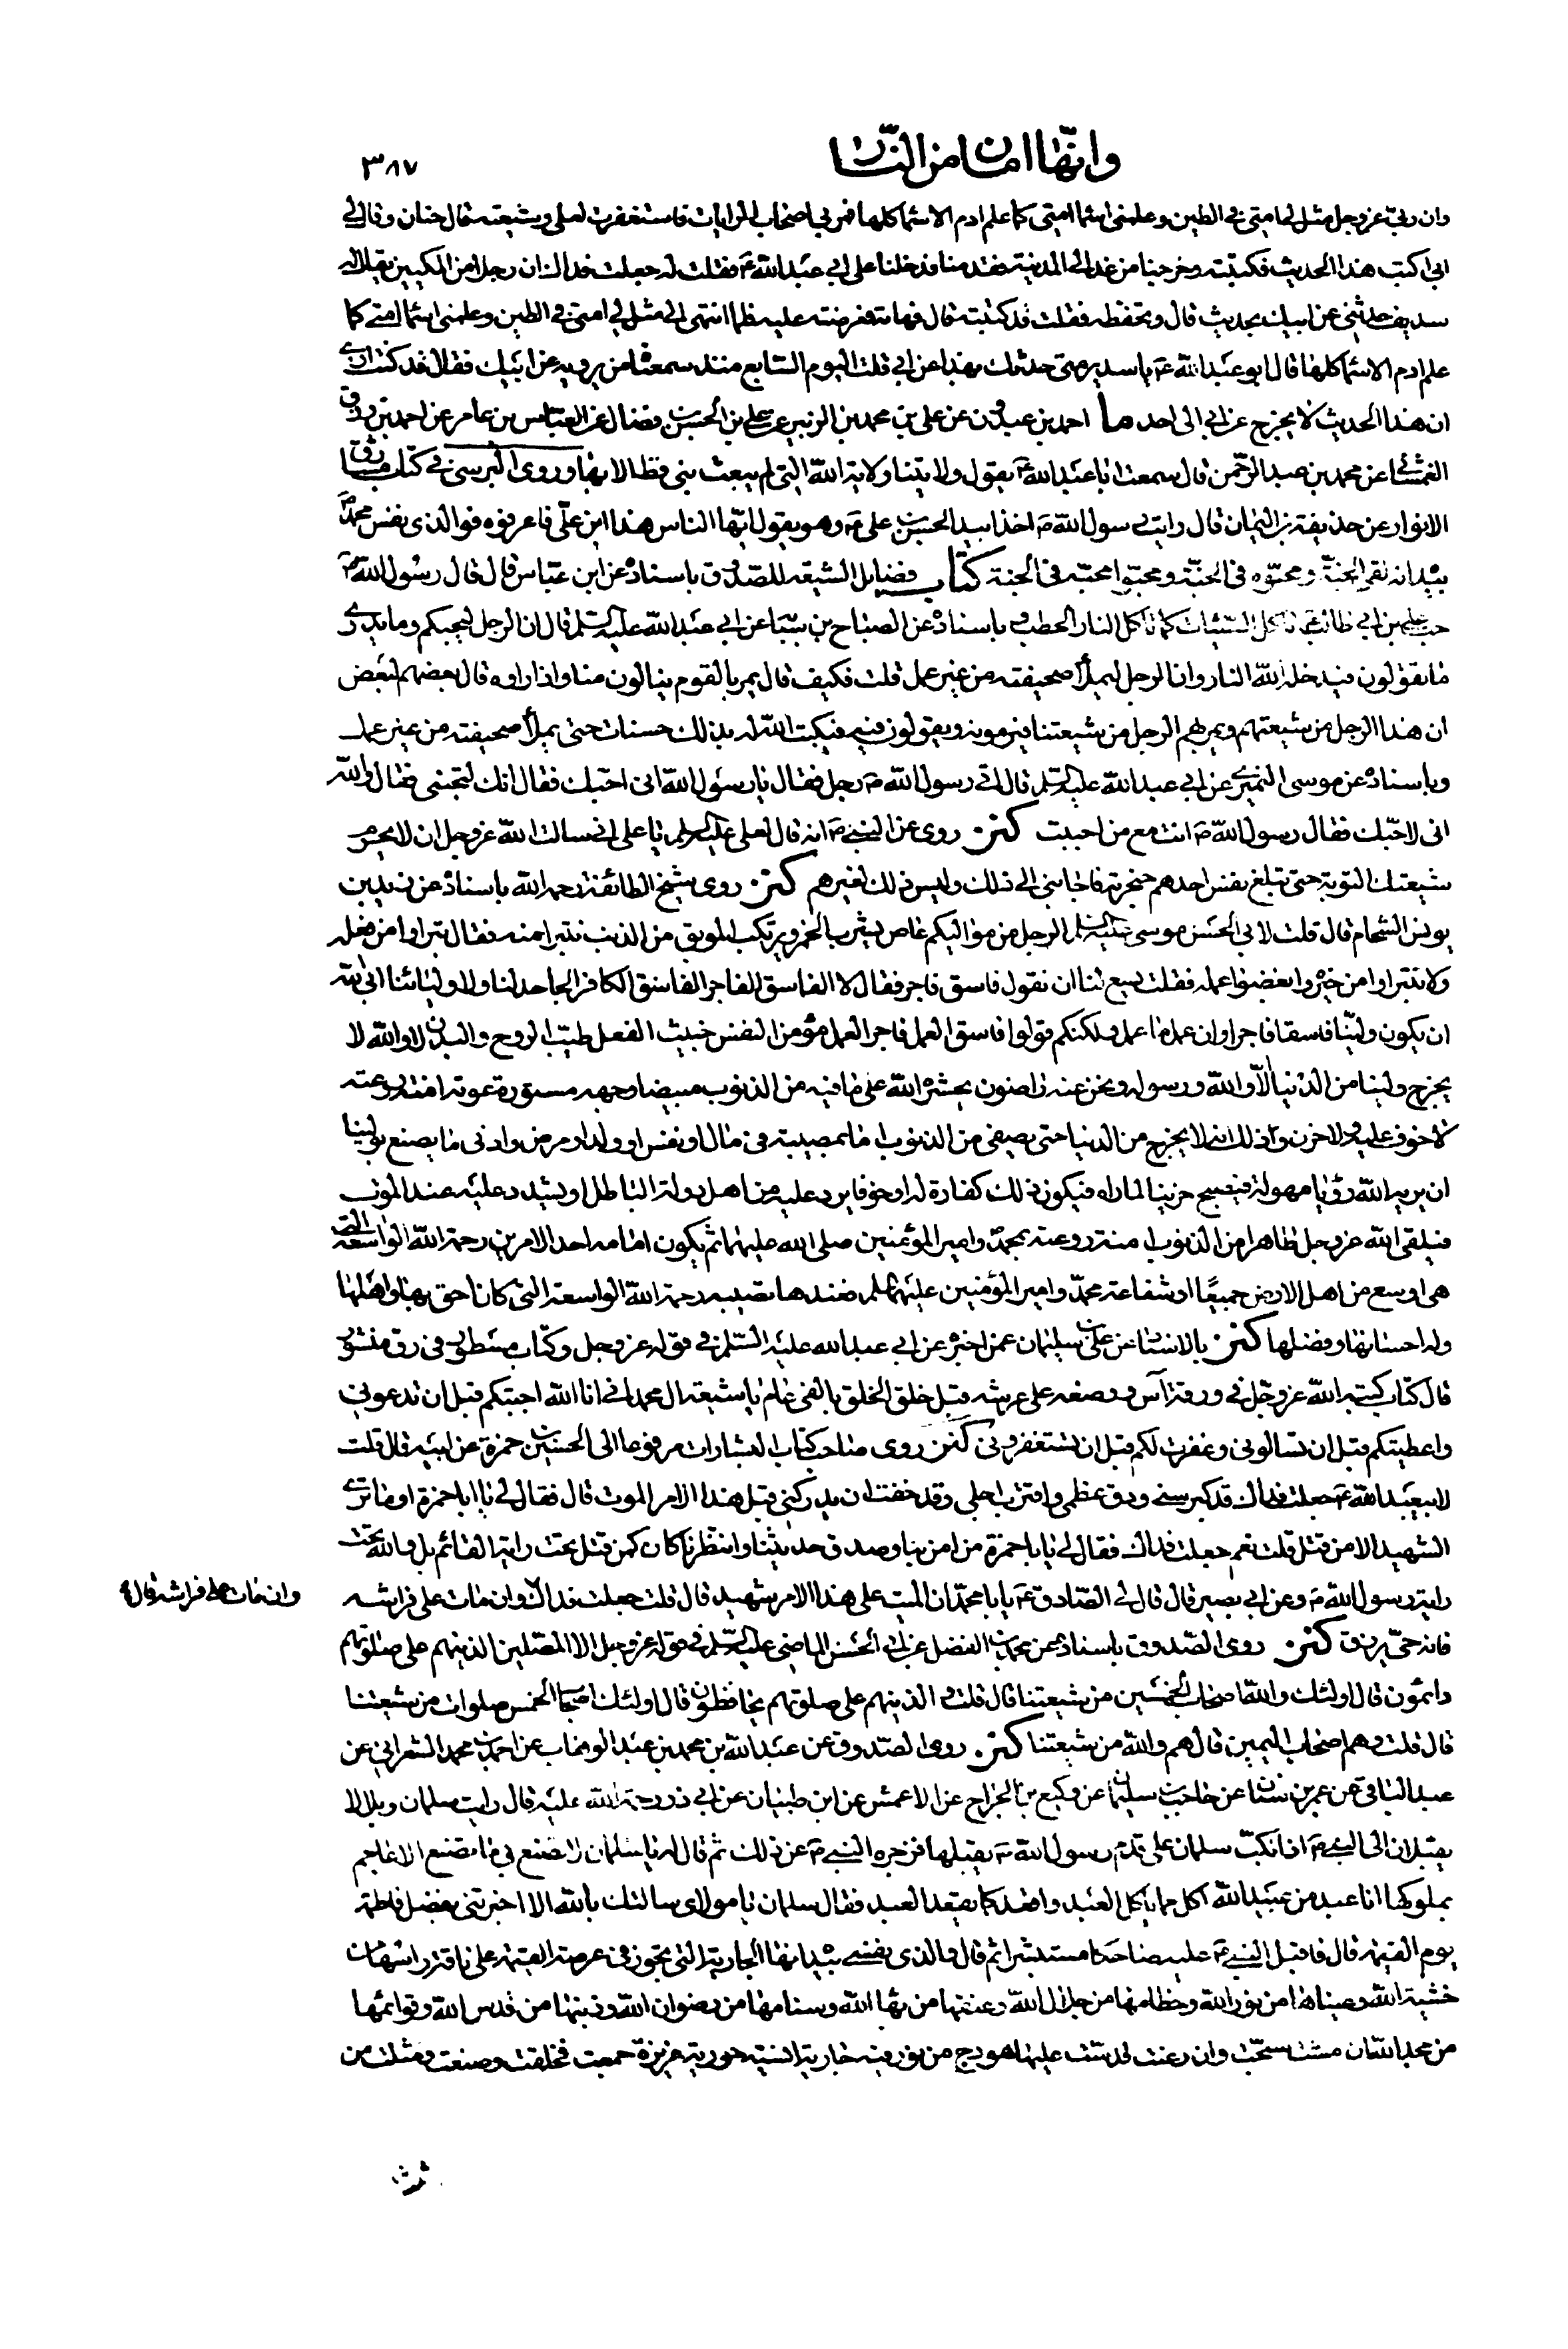 وانّها امان من النّار
٣٨٧
وان ربّي عزوجل مثل لي امتي في الطين وعلمني اسماء امتي كما علم ادم الاسماء كلها فمر بي اصحاب الرايات فاستغفرت لعلي وشيعته قال حنان وقال لي
ابي اكتب هذا الحديث فكتبته وخرجنا من غد الى المدينة فقدمنا فدخلنا على ابي عبد الله ع فقلت له جعلت فداك ان رجلا من المكيين يقال له
سديف حدثني عن ابيك بحديث قال وتحفظه فقلت قد كتبته قال فهاته فعرضته عليه فلما انتهى الى مثل لي امتي في الطين وعلمني اسماء امتي كما
علم ادم الاسماء كلها قال ابو عبد الله ع يا سدير متى حدثك بهذا عن ابي قلت اليوم السابع منذ سمعناه من يرويه عن ابيك فقال قد كنت ارى
ان هذا الحديث لا يخرج عن ابي الى احد ما احمد بن عبدون عن علي بن محمد بن الزبير عن علي بن الحسن بن فضال عن العباس بن عامر عن احمد بن رزق
الغمشاني عن محمد بن عبد الرحمن قال سمعت ابا عبد الله ع يقول ولايتنا ولاية الله التي لم يبعث نبي قط الا بها وروى البرسي في كتاب مشارق
الانوار عن حذيفة بن اليمان قال رايت رسول الله ص اخذا بيد الحسين بن علي ع وهو يقول ايها الناس هذا ابن علّي فاعرفوه فوالذي نفس محمد ص
بيده انه لفي الجنّة ومحبّوه في الجنّة ومحبّوا محبّيه في الجنة كتاب فضايل الشيعه للصدوق باسناده عن ابن عبّاس قال قال رسول الله ص
حب علي بن ابي طالب ع تاكل السّيئات كما تاكل النار الحطب وباسناده عن الصباح بن سيابة عن ابي عبد الله عليه السلم قال ان الرجل ليحبكم وما يدرى
ما تقولون فيدخله الله النار وان الرجل ليملأ صحيفته من غير عمل قلت فكيف قال يمر بالقوم ينالون منا واذا راوه قال بعضهم لبعض
ان هذا الرجل من شيعتهم ويمر بهم الرجل من شيعتنا فيرمونه ويقولون فيه فيكتب الله له بذلك حسنات حتى يملأ صحيفته من غير عمل
وباسناده عن موسى النميري عن ابي عبد الله عليه السلم قال اتى رسول الله ص رجل فقال يا رسول الله اني احبّك فقال انك لتحبني فقال والله
انى لاحّبك فقال رسول الله ص انت مع من احببت كنز روى عن النبي ص انه قال لعلي عليه السلم يا علي اني سالت الله عزوجل ان لا يحرم
شيعتك التوبة حتى تبلغ نفس احدهم حنجرته فاجابني الى ذلك وليس ذلك لغيرهم كنز روى شيخ الطائفة رحمه الله باسناده عن زيد بن
يونس الشحام قال قلت لابي الحسن موسى عليه السلم الرجل من مواليكم عاص يشرب الخمر ويرتكب الموبق من الذنب نتبرا منه فقال تبراوا من فعله
ولا تتبراوا من خيره وابغضوا عمله فقلت يسع لنا ان نقول فاسق فاجر فقال لا الفاسق الفاجر الفاسق الكافر الجاحد لنا ولاوليائنا ابى الله
ان يكون وليّنا فاسقا فاجرا وان عمل ما عمل ولكنكم قولوا فاسق العمل فاجر العمل مؤمن النفس خبيث الفعل طيّب الروح والبدن لا والله لا
يخرج ولينا من الدنيا الّا والله ورسوله ونحن عنه راضون يحشره الله على ما فيه من الذنوب مبيضا وجهه مستورة عورته امنة روعته
لا خوف عليه ولا حزن وذلك انه لا يخرج من الدنيا حتى يصفى من الذنوب اما بمصيبة في مال او نفس او ولد او مرض وادنى ما يصنع بولينا
ان يريه الله رؤيا مهولة فيصبح حزينا لما راه فيكون ذلك كفارة له او خوفا يرد عليه من اهل دولة الباطل او يشدد عليه عند الموت
فيلقى الله عزوجل طاهرا من الذنوب امنة روعته بمحمد وامير المؤمنين صلى الله عليهما ثم يكون امامه احد الامرين رحمة الله الواسعة التي
هي اوسع من اهل الارض جميعًا او شفاعة محمّد وامير المؤمنين عليهما السلم فعندها تصيبه رحمة الله الواسعة التي كان احق بها واهلها
وله احسانها وفضلها كنز بالاسناد عن علي بن سليمان عمن اخبره عن ابي عبد الله عليه السّلم في قوله عزوجل وكتاب مسطور في رق منشور
قال كتاب كتبه الله عزوجل في ورقة آس ووضعه على عرشه قبل خلق الخلق بالفي عام يا شيعة ال محمد اني انا الله اجبتكم قبل ان تدعوني
واعطيتكم قبل ان تسالوني وغفرت لكم قبل ان تستغفروني كنز روى صاحب كتاب البشارات مرفوعا الى الحسين بن حمزة عن ابيه قال قلت
لابي عبد الله ع جعلت فداك قد كبر سني ودق عظمي واقترب اجلي وقد خفت ان يدركني قبل هذا الامر الموت قال فقال لي يا ابا حمزة او ما ترى
الشهيد الا من قتل قلت نعم جعلت فداك فقال لي يا ابا حمزة من امن بنا وصدق حديثنا وانتظرنا كان كمن قتل تحت راية القائم بل والله تحت
راية رسول الله ص وعن ابي بصير قال قال لي الصّادق ع يا ابا محمّد ان الميت على هذا الامر شهيد قال قلت جعلت فداك وان مات على فراشه
وان مات على فراشه قال ع
فانه حىّ يرزق كنز روى الصّدوق باسناده عن محمد بن الفضل عن ابي الحسن الماضي عليه السلم في قوله عزوجل الا المصّلين الذينهم على صلوتهم
دائمون قال اولئك والله اصحاب الخمسين من شيعتنا قال قلت والذينهم على صلوتهم يحافظون قال اولئك اصحاب الخمس صلوات من شيعتنا
قال قلت وهم اصحاب اليمين قال هم والله من شيعتنا كنز روى الصّدوق عن عبد الله بن محمد بن عبد الوهاب عن احمد بن محمد الشعراني عن
عبد الباقي عن عمر بن سنان عن حاجب بن سليمان عن وكيع بن الجراح عن الاعمش عن ابن ظبيان عن ابي ذر رحمة الله عليه قال رايت سلمان وبلالا
يقبلان الى النبي ص اذ انكبّ سلمان على قدم رسول الله ص يقبلها فزجره النبي ص عن ذلك ثم قال له يا سلمان لا تصنع بي ما تصنع الاعاجم
بملوكها انا عبد من عبيد الله اكل مما ياكل العبد واقعد كما يقعد العبد فقال سلمان يا مولاى سالتك بالله الا اخبرتني بفضل فاطمة
يوم القيمة قال فاقبل النبي ع عليه ضاحكا مستبشرا ثم قال والذي نفسي بيده انها الجارية التي تجوز في عرصة القيمة على ناقة راسها من
خشية الله وعيناها من نور الله وخطامها من جلال الله وعنقها من بهاء الله وسنامها من رضوان الله وذنبها من قدس الله وقوائمها
من مجد الله ان مشت سبّحت وان رغت قدست عليها هودج من نور فيه جارية انسية حورية عزيزة جمعت فخلقت وصنعت ومثلت من